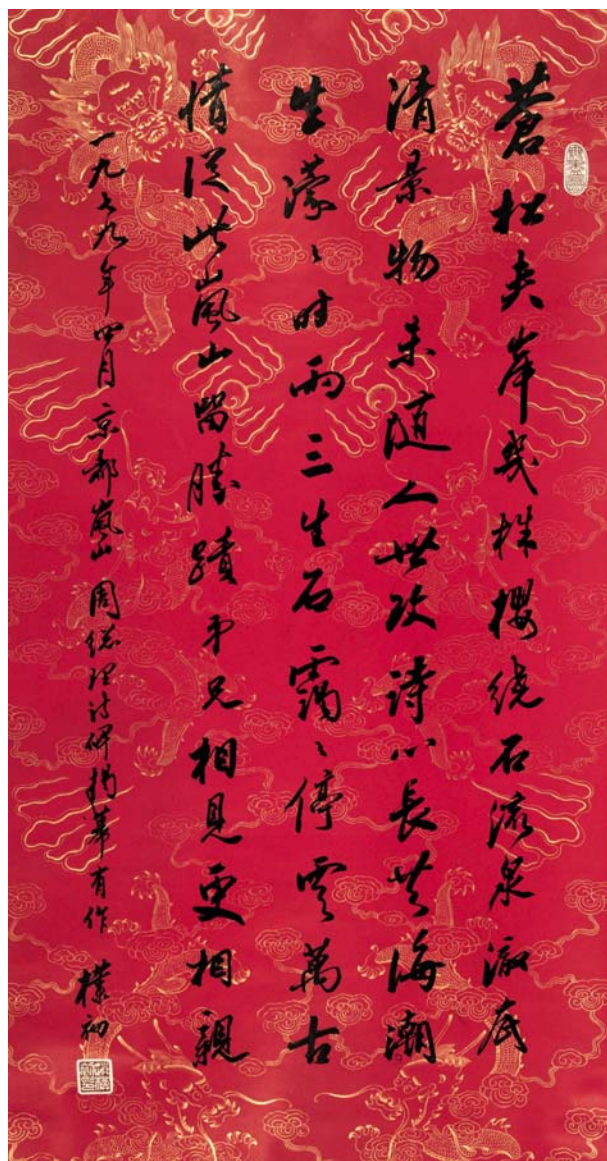 蒼松夹岸几株樱绕石流泉澈底
清景物未随人世改诗心长共海潮
生濛〻时雨三生石霭〻停雲萬古
情從此嵐山留勝蹟弟兄相見更相親
一九七九年四月京都嵐山周總理诗碑揭幕有作 樸初